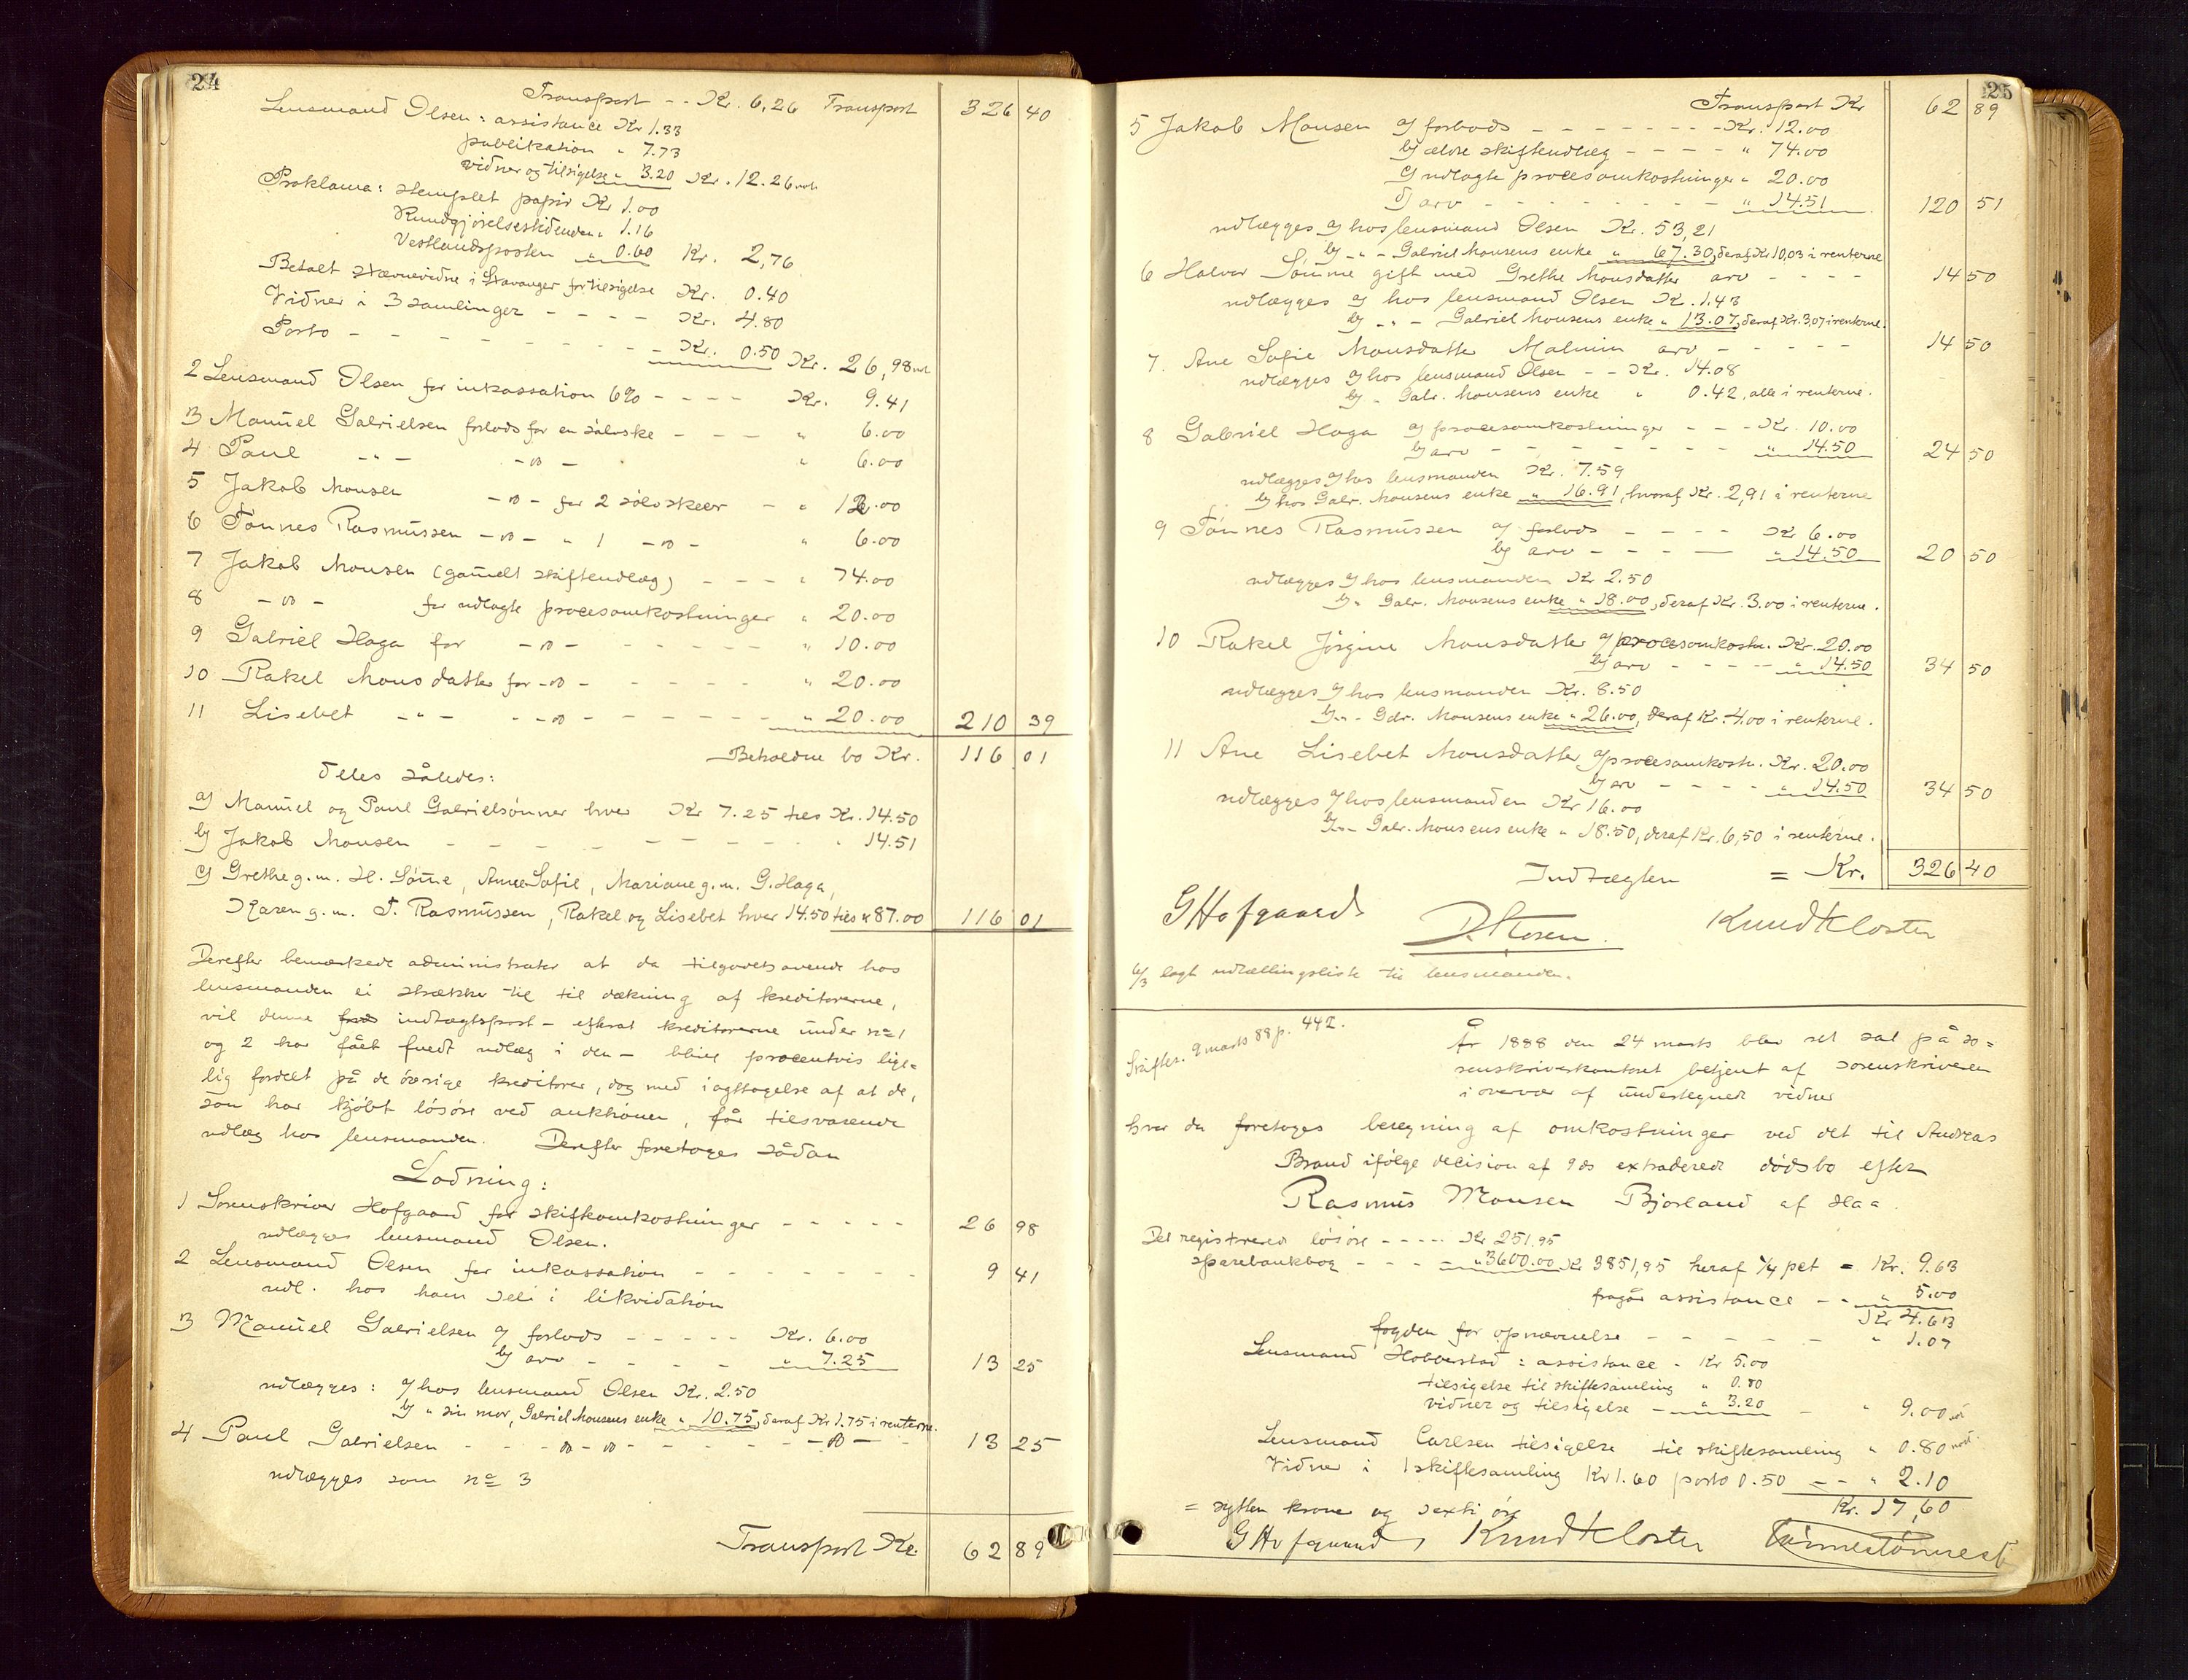 24
Transport -- Kr. 6,26 Transport 326 40
Lensmand Olsen: assistance Kr 1.33
publikation " 7.73
vidner og tilsigelse " 3.20 Kr. 12.26 not
Proklama: stemplet papir Kr 1.00
Kundgjørelsestidenden " 1.16
Vestlandsposten " 0.60 Kr. 2,76
Betalt stævnevidne i Stavanger for tilsigelse Kr. 0.40
Vidner i 3 samlinger - - - - Kr. 4.80
Porto - - - - - - - - Kr. 0.50 Kr. 26,98 not
2 Lensmand Olsen for inkassation 6% - - - - Kr. 9.41
3 Manuel Gabrielsen forlods for en sølvske - - - " 6.00
4 Paul -"- -"- " 6.00
5 Jakob Monsen -"- for 2 sølvskeer - " 12.00
6 Tønnes Rasmussen -"- " 1 -"- " 6.00
7 Jakob Monsen (gamelt skifteudlæg) - - - " 74.00
8 -"- for udlagte procesomkostninger " 20.00
9 Gabriel Haga for -"- - - - - - " 10.00
10 Rakel Monsdatter for -"- - - - - - " 20.00
11 Lisebet -"- -"- - - - - - " 20.00 210 39
Beholdne bo Kr. 116 01
deles således:
a) Manuel og Paul Gabrielsønner hver Kr 7.25 tils Kr. 14.50
b) Jakob Monsen - - - - - - - - - " 14.51
c) Grethe g.m. H. Sømme, Ane Sofie, Mariane g.m. G. Haga,
Karen g.m. T. Rasmussen, Rakel og Lisebet hver 14.50 tils " 87.00 116 01
Derefter bemærkede administrator at da tilgodehavende hos
lensmanden ei strækker til til dækning af kreditorerne,
vil denne indtægtspost - efterat kreditorerne under no 1
og 2 har fået fuldt udlæg i den - blive procentvis lige-
lig fordelt på de øvrige kreditorer, dog med iagttagelse af at de,
som har kjøbt løsøre ved auktionen, får tilsvarende
udlæg hos lensmanden. Derefter foretoges sådan
Lodning:
1 Sorenskriver Hofgaard for skifteomkostninger - - - - - 26 98
udlægges lensmand Olsen.
2 Lensmand Olsen for inkassation - - - - - - - 9 41
udl. hos ham selv i likvidation
3 Manuel Gabrielsen a) forlods - - - - - Kr. 6.00
b) arv - - - - " 7.25 13 25
udlægges: a) hos lensmand Olsen Kr. 2.50
b) " sin mor, Gabriel Monsens enke " 10.75, deraf Kr 1.75 i renterne.
4 Paul Gabrielsen - - - -"- -"- - - - - -"- - 13 25
udlægges som no 3
Transport Kr. 62 89
25
Transport Kr 62 89
5 Jakob Monsen a) forlods - - - - - - - Kr. 12.00
b) ældre skifteudlæg - - - - " 74.00
c) udlagte procesomkostninger " 20.00
d) arv - - - - - - - - " 14.51 120 51
udlægges a) hos lensmand Olsen Kr. 53,21
b) -"- Gabriel Monsens enke " 67.30, deraf Kr 10,03 i renterne
6 Halvor Sømme gift med Grethe Monsdatter arv - - - - 14 50
udlægges a) hos lensmand Olsen Kr. 1.43
b) -"- Gabriel Monsens enke " 13.07, deraf Kr. 3,07 i renterne.
7. Ane Sofie Monsdatter Malmin arv - - - - - 14 50
udlægges a) hos lensmand Olsen - - Kr. 14.08
b) " Gabr. Monsens enke " 0.42, alle i renterne.
8 Gabriel Haga a) procesomkostninger - - - Kr. 10.00
b) arv - - - - - - - " 14.50 24 50
udlægges a) hos lensmanden Kr. 7.59
b) hos Gabr. Monsens enke " 16.91, hvoraf Kr. 2,91 i renterne
9 Tønnes Rasmussen a) forlods - - - - Kr 6.00
b) arv - - - - " 14.50 20 50
udlægges a) hos lensmanden Kr 2.50
b) " Gabr. Monsens enke " 18.00, deraf Kr. 3.00 i renterne.
10 Rakel Jørgine Monsdatter a) procesomkostn. Kr. 20.00
b) arv - - - - - " 14.50 34 50
udlægges a) hos lensmanden Kr. 8.50
b) -"- Gabr. Monsens enke " 26.00, deraf Kr. 4.00 i renterne.
11 Ane Lisebet Monsdatter a) procesomkostn. Kr. 20.00
b) arv - - - - " 14.50 34 50
udlægges a) hos lensmanden Kr 16.00
b) -"- Gabr. Monsens enke " 18.50, deraf Kr. 6,50 i renterne.
Indtægten = Kr. 326 40
GHofgaard Knud Kloster
6/3 lagt udlodningsliste til lensmanden.
Skiftes. 9 marts 88 p. 442.
År 1888 den 24 marts blev ret sat på so=
renskriverkontoret betjent af sorenskriveren
i overvær af undertegnede vidner
hvor da foretoges beregning af omkostninger ved det til Andreas
Braud ifølge decision af 9 ds extraderede dødsbo efter
Rasmus Monsen Bjorland af Haa.
Det registrerede løsøre - - - - - Kr 251.95
sparebankbog - - - - " 3600.00 Kr 3851,95 heraf 1/4 pct = Kr. 9.63
fragår assistance - - " 5.00
Kr 4.63
fogden for opnævnelse - - - - - - " 1.07
Lensmand Hobberstad: assistance - Kr 5.00
tilsigelse til skiftesamling " 0.80
vidner og tilsigelse - " 3.20 - " 9.00 not
Lensmand Carlsen tilsigelse til skiftesamling " 0.80 not
Vidner i 1 skiftesamling Kr 1.60 porto 0.50 - - " 2.10
Kr. 17,60
= sytten kroner og sexti øre
GHofgaard Knud Kloster